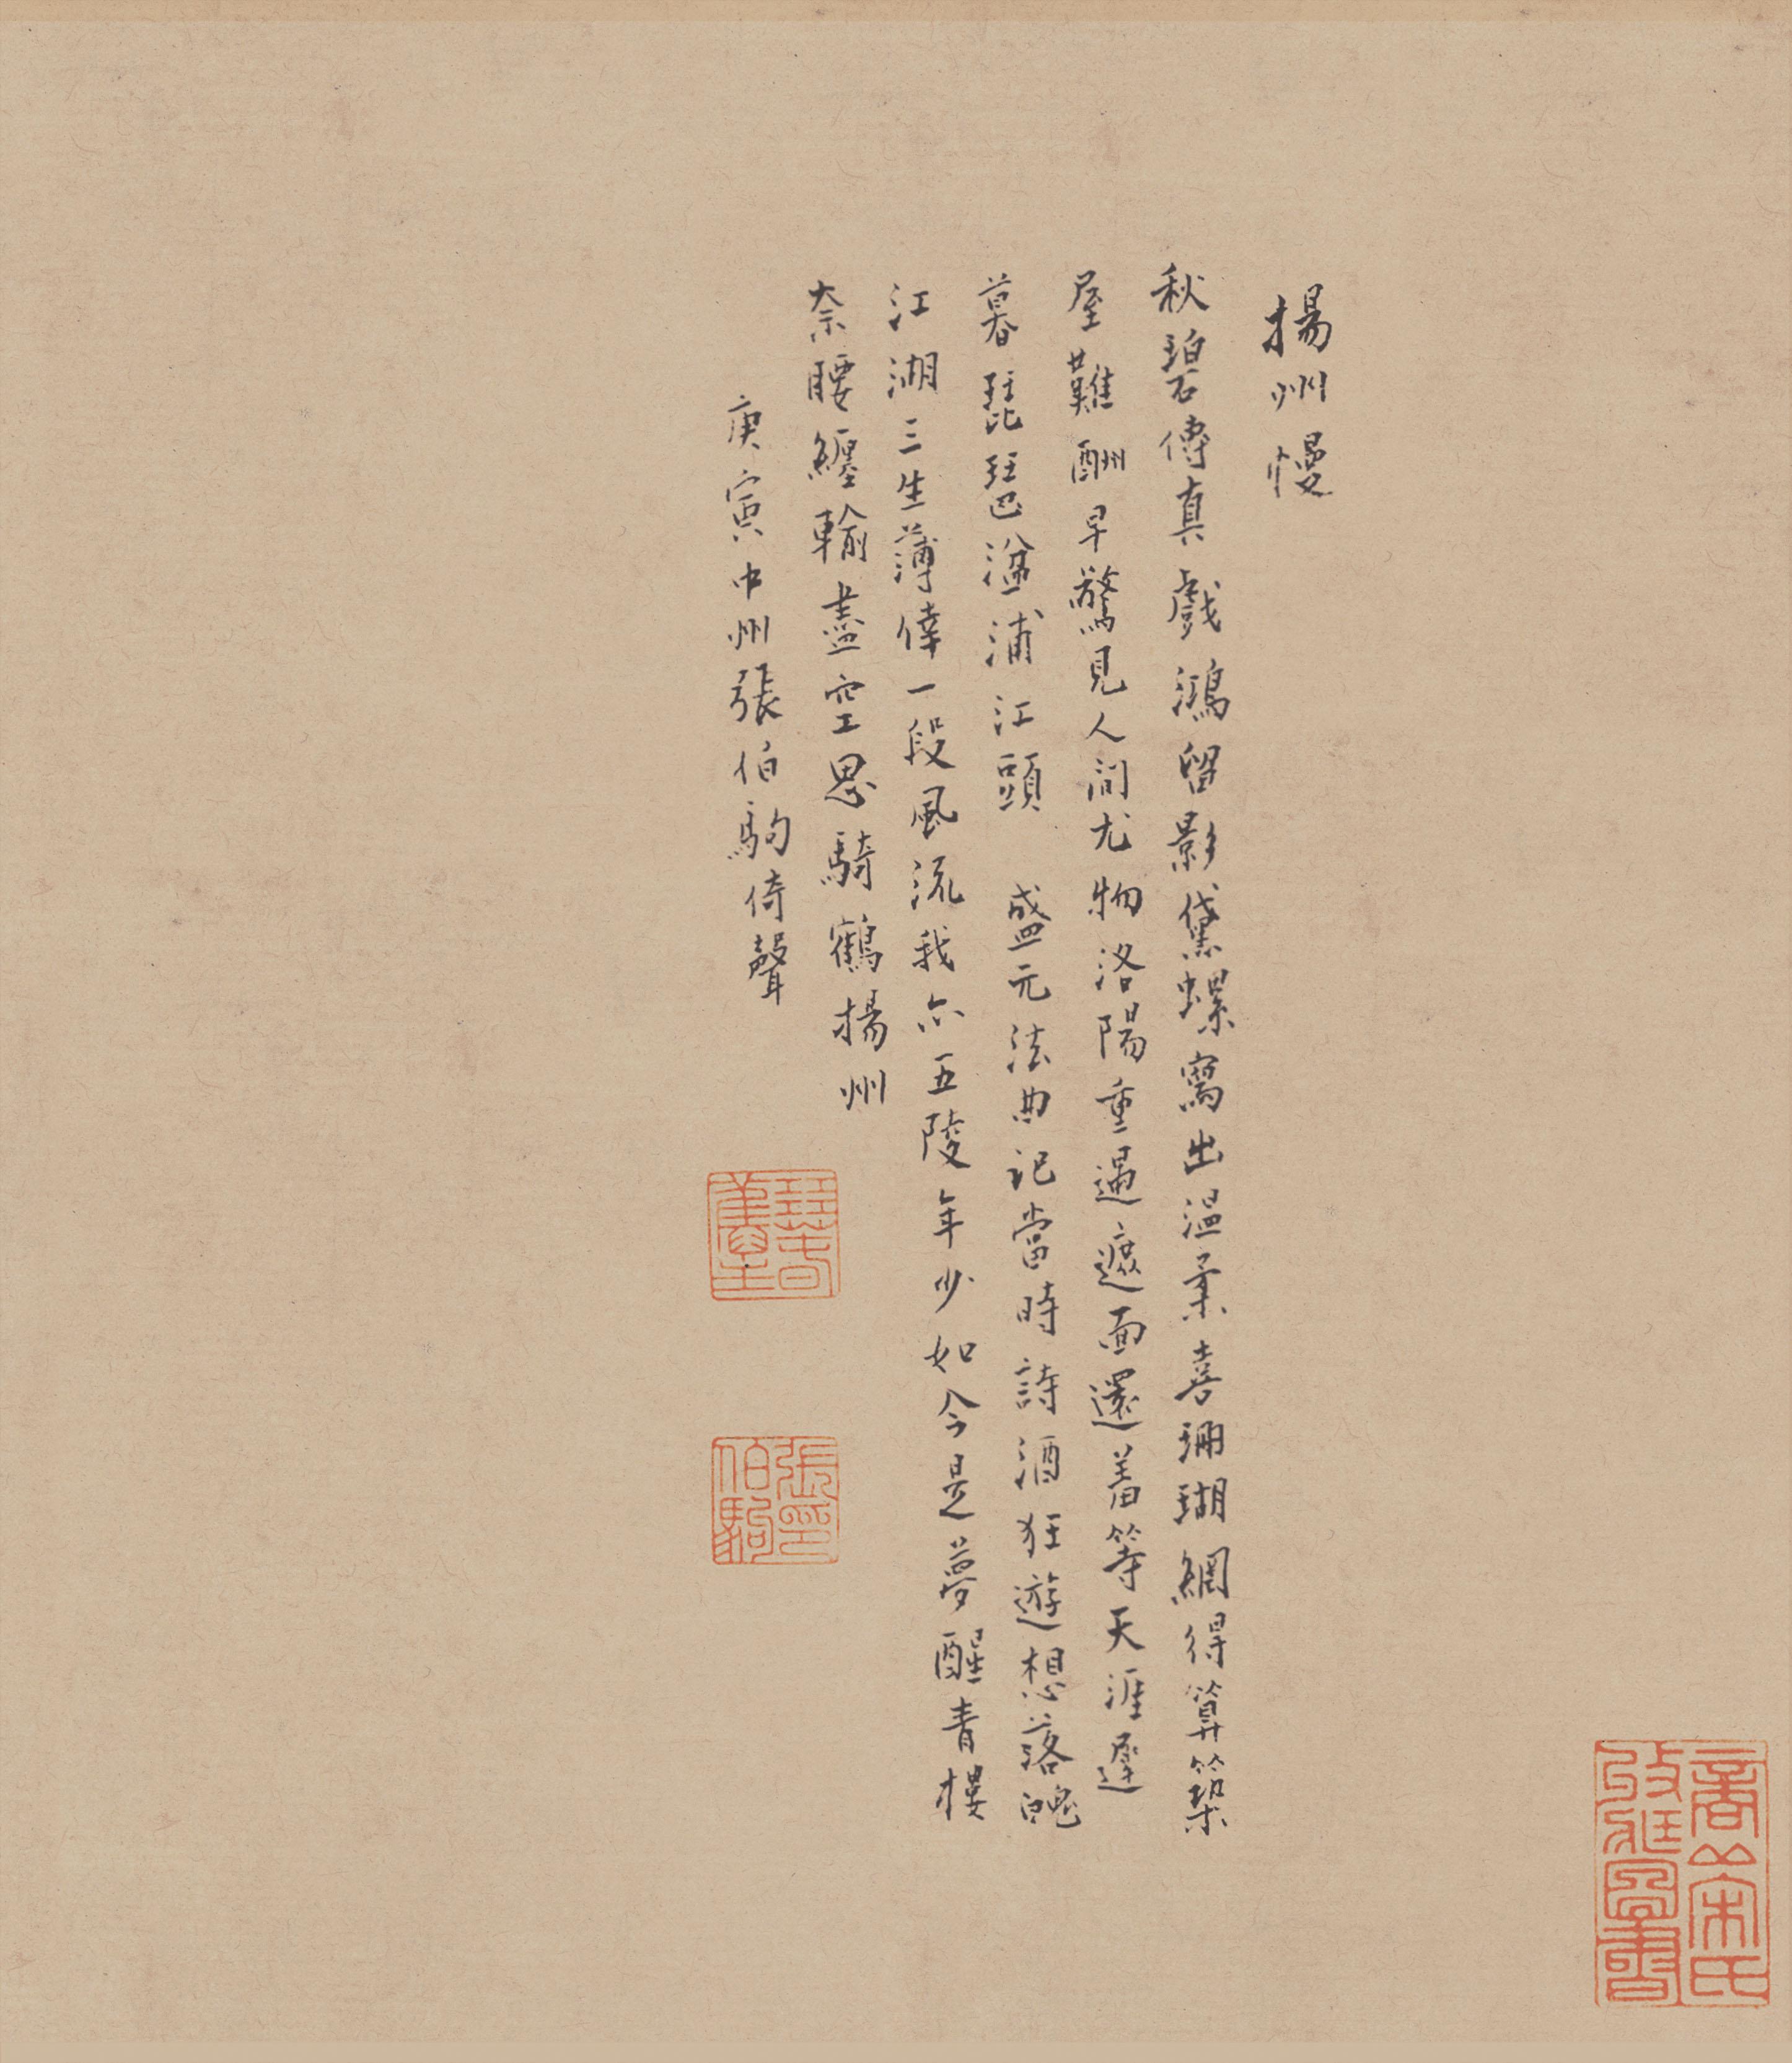 揚州慢
秋碧傳真戲鴻留影黛螺寫出溫柔喜珊瑚網得算築
屋難酬早驚見人間尤物洛陽重遇遮面還羞等天涯遲
暮琵琶湓浦江頭 盛元法曲記當時詩酒狂遊想落魄
江湖三生薄倖一段風流我亦五陵年少如今是夢醒青樓
奈腰纏輸盡空思騎鶴揚州
庚寅中州張伯駒倚聲
張伯駒印